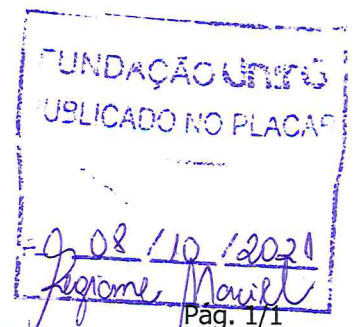 FUNDAÇÃO UnirG
PUBLICADO NO PLACAR
08 / 10 / 2021
Maciel
Pág. 1/1